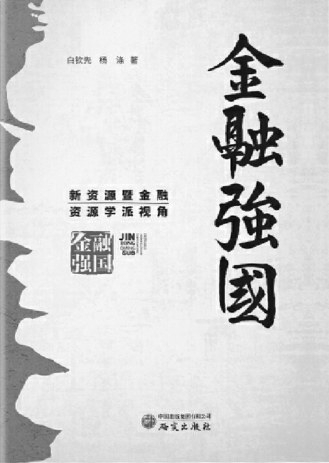 白钦先 杨 涤 著
金融強國
新资源暨金融
资源学派视角
金融
强国
JIN
RONG
QIANG
GUO
中国出版集团有限公司
研究出版社